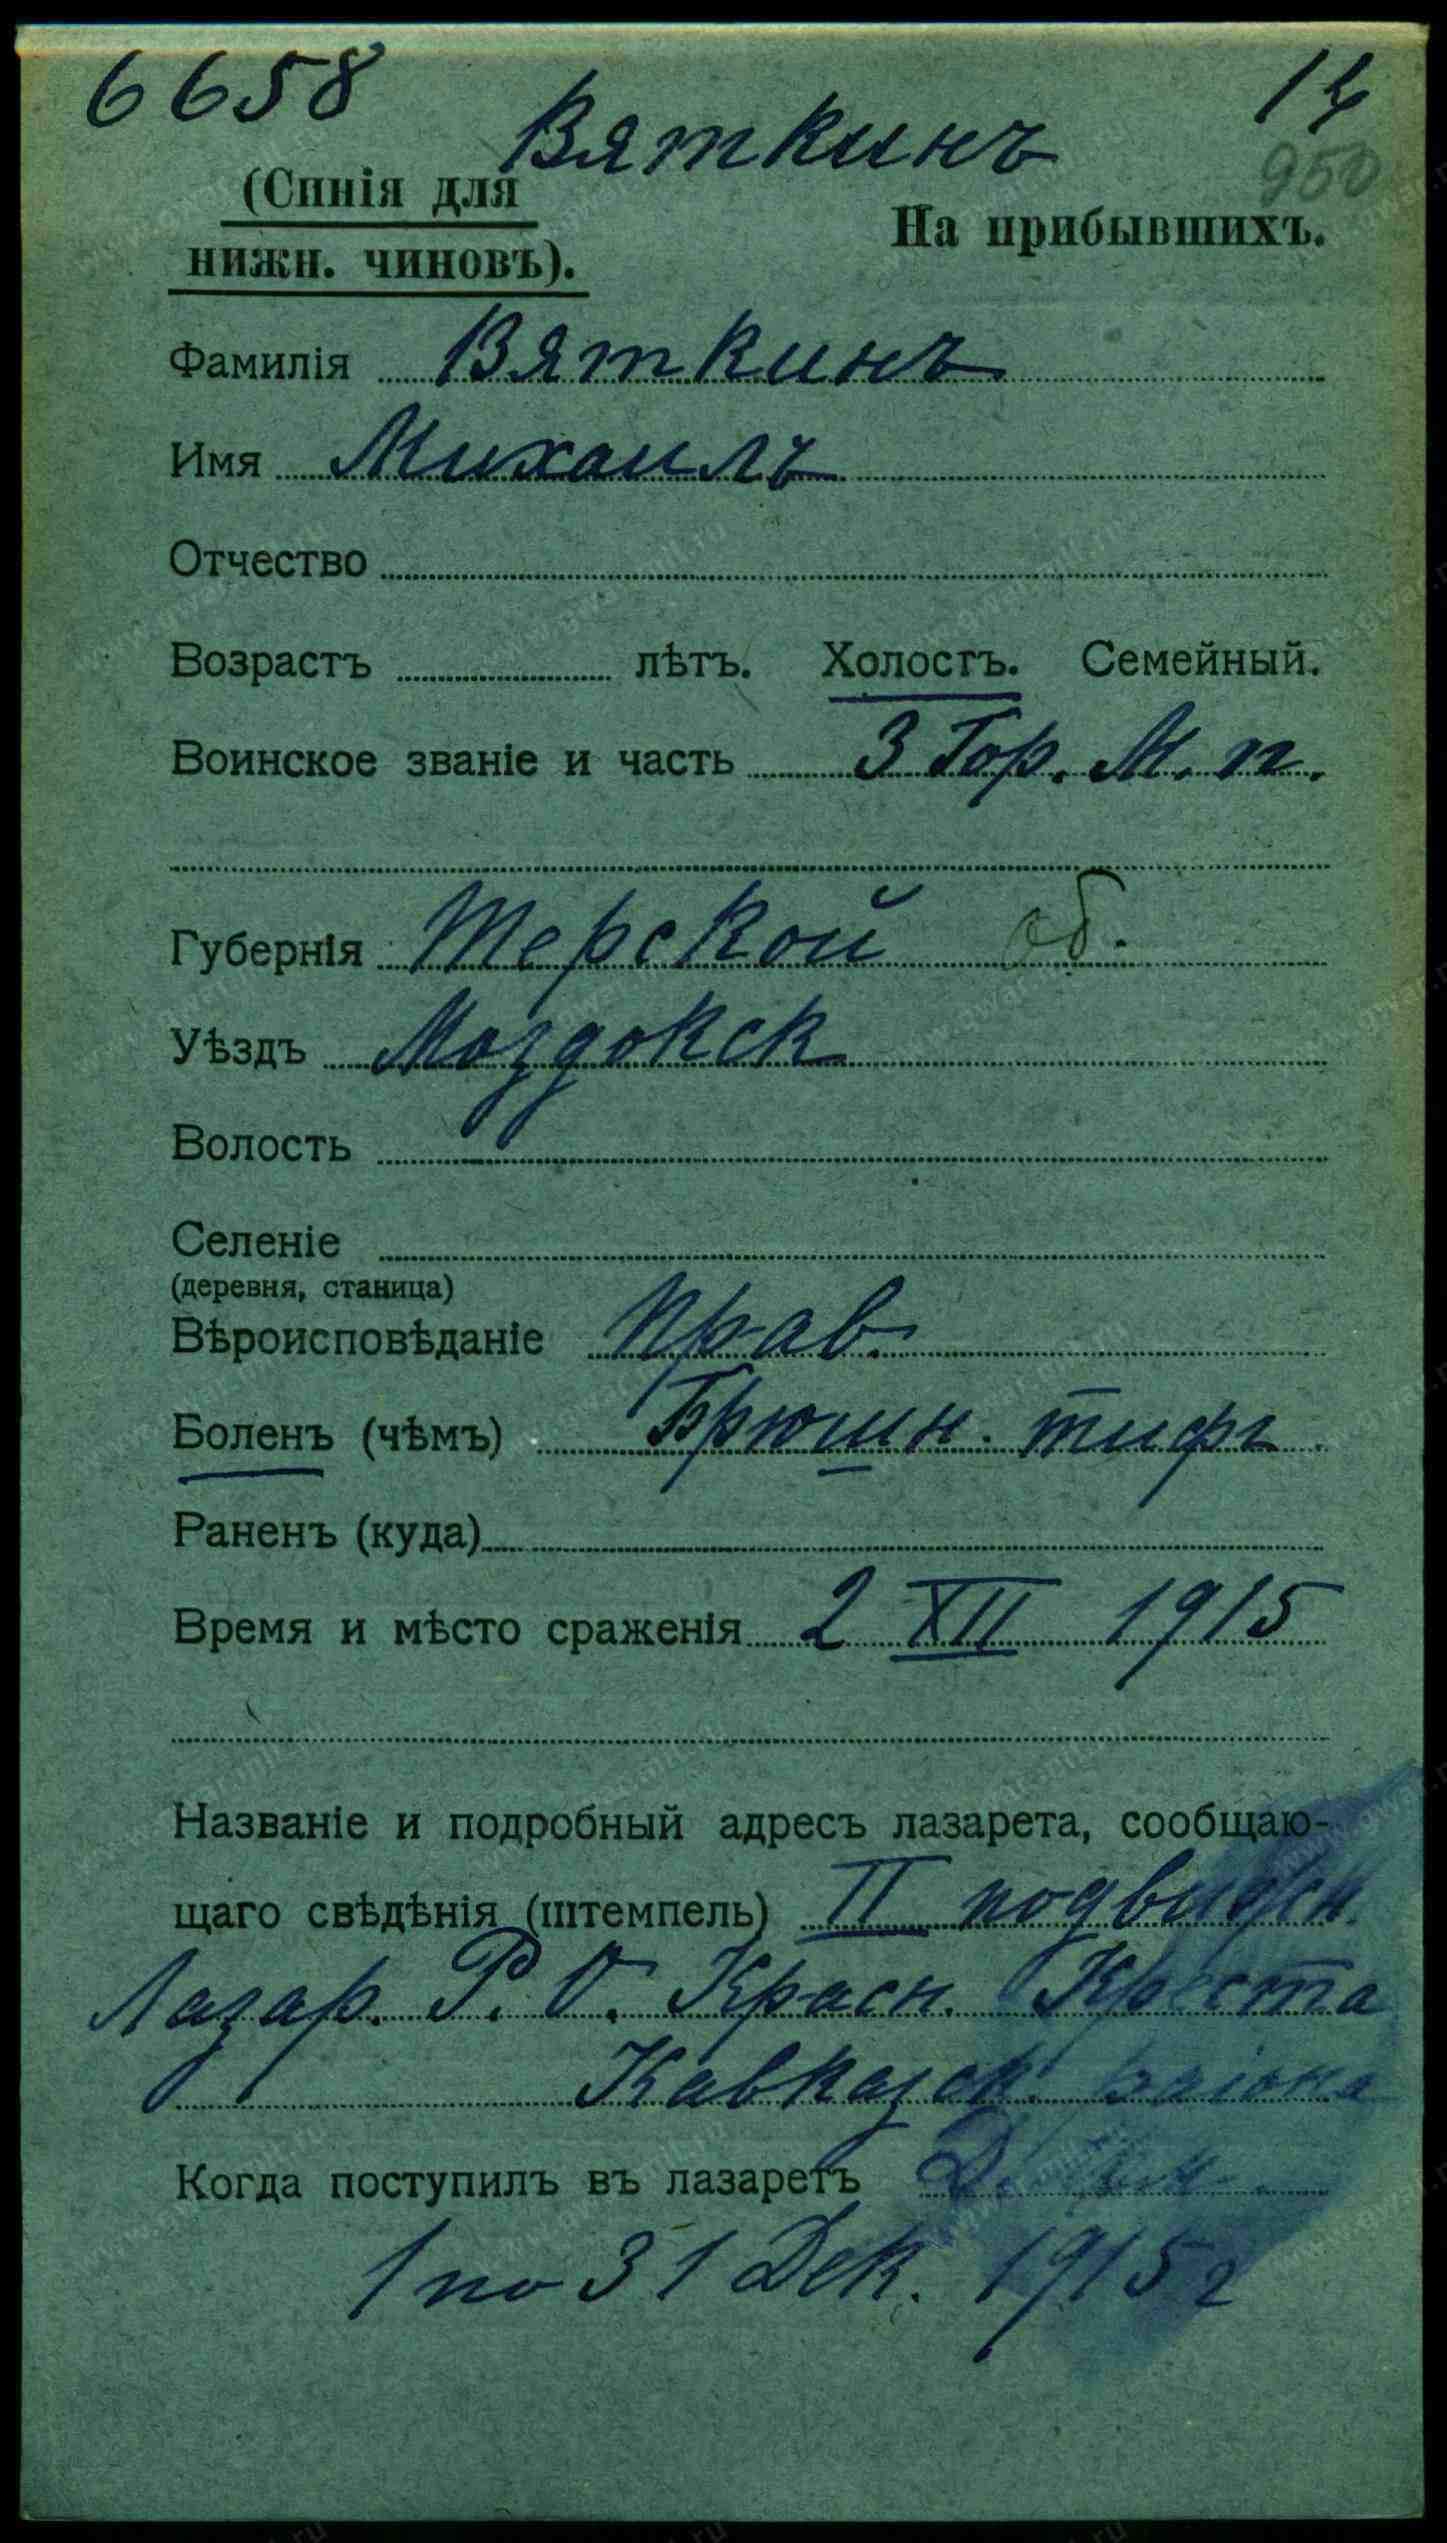 6658 14
Вяткинъ
950
(Синія для
нижн. чиновъ).
На прибывшихъ.
Фамилія Вяткинъ
Имя Михаилъ
Отчество
Возрастъ лѣтъ. Холостъ. Семейный.
Воинское званіе и часть 3 Гор. М. п.
Губернія Терской об.
Уѣздъ Моздокск
Волость
Селеніе
(деревня, станица)
Вѣроисповѣданіе Прав.
Боленъ (чѣмъ) Брюшн. тифъ
Раненъ (куда)
Время и мѣсто сраженія 2 XII 1915
Названіе и подробный адресъ лазарета, сообщаю-
щаго свѣдѣнія (штемпель) II подвижн.
Лазар. Р. О. Красн. Креста
Кавказск. района
Когда поступилъ въ лазаретъ
1 по 31 Дек. 1915 г